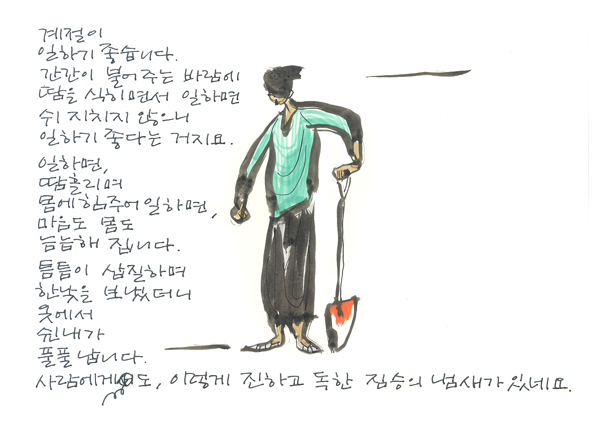 계절이
일하기 좋습니다.
간간이 불어 주는 바람에
땀을 식히면서 일하면
쉬 지치지 않으니
일하기 좋다는 거지요.
일하면,
땀흘리며
몸에힘주어일하면,
마음도 몸도
늠늠해 집니다.
틈틈이 삽질하며
한낮을 보냈더니
옷에서
쉰내가
풀풀 납니다.
사람에게도, 이렇게 진하고 독한 짐승의 냄새가 있네요.